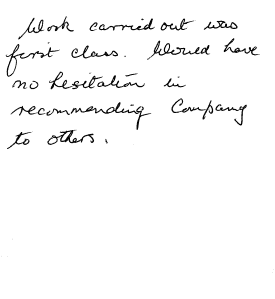 Work carried out was
first class. Would have
no hesitation in
recommending Company
to others.